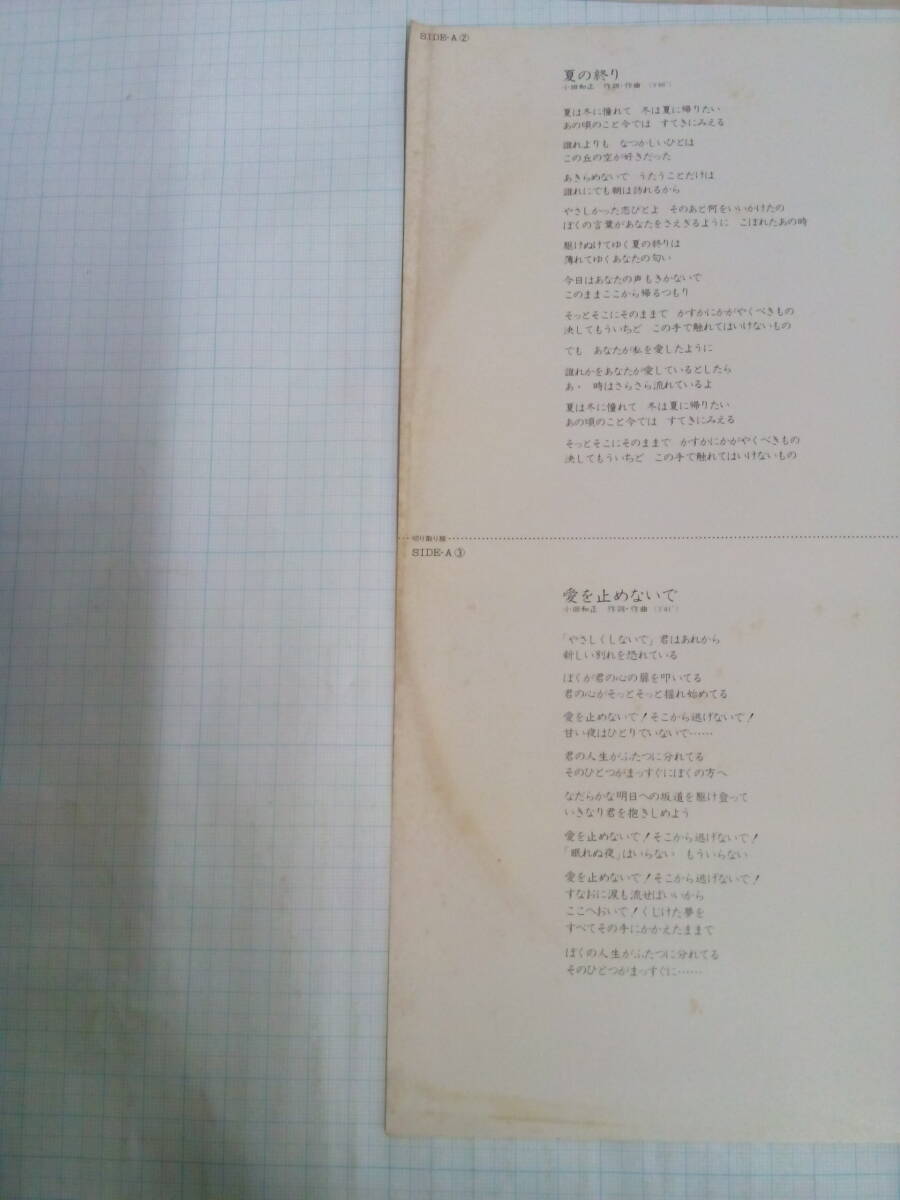 SIDE・A②
夏の終り
小田和正 作詞・作曲
夏は冬に憧れて 冬は夏に帰りたい
あの頃のこと今では すてきにみえる
誰れよりも なつかしいひとは
この丘の空が好きだった
あきらめないで うたうことだけは
誰れにでも朝は訪れるから
やさしかった恋びとよ そのあと何をいいかけたの
ぼくの言葉があなたをさえぎるように こぼれたあの時
駆けぬけてゆく夏の終りは
薄れてゆくあなたの匂い
今日はあなたの声もきかないで
このままここから帰るつもり
そっとそこにそのままで かすかにかがやくべきもの
決してもういちど この手で触れてはいけないもの
でも あなたが私を愛したように
誰れかをあなたが愛しているとしたら
あ・ 時はさらさら流れているよ
夏は冬に憧れて 冬は夏に帰りたい
あの頃のこと今では すてきにみえる
そっとそこにそのままで かすかにかがやくべきもの
決してもういちど この手で触れてはいけないもの
切り取り線
SIDE・A③
愛を止めないで
小田和正 作詞・作曲
「やさしくしないで」君はあれから
新しい別れを恐れている
ぼくが君の心の扉を叩いてる
君の心がそっとそっと揺れ始めてる
愛を止めないで！そこから逃げないで！
甘い夜はひとりでいないで……
君の人生がふたつに分れてる
そのひとつがまっすぐにぼくの方へ
なだらかな明日への坂道を駆け登って
いきなり君を抱きしめよう
愛を止めないで！そこから逃げないで！
「眠れぬ夜」はいらない もういらない
愛を止めないで！そこから逃げないで！
すなおに涙も流せばいいから
ここへおいで！くじけた夢を
すべてその手にかかえたままで
ぼくの人生がふたつに分れてる
そのひとつがまっすぐに……